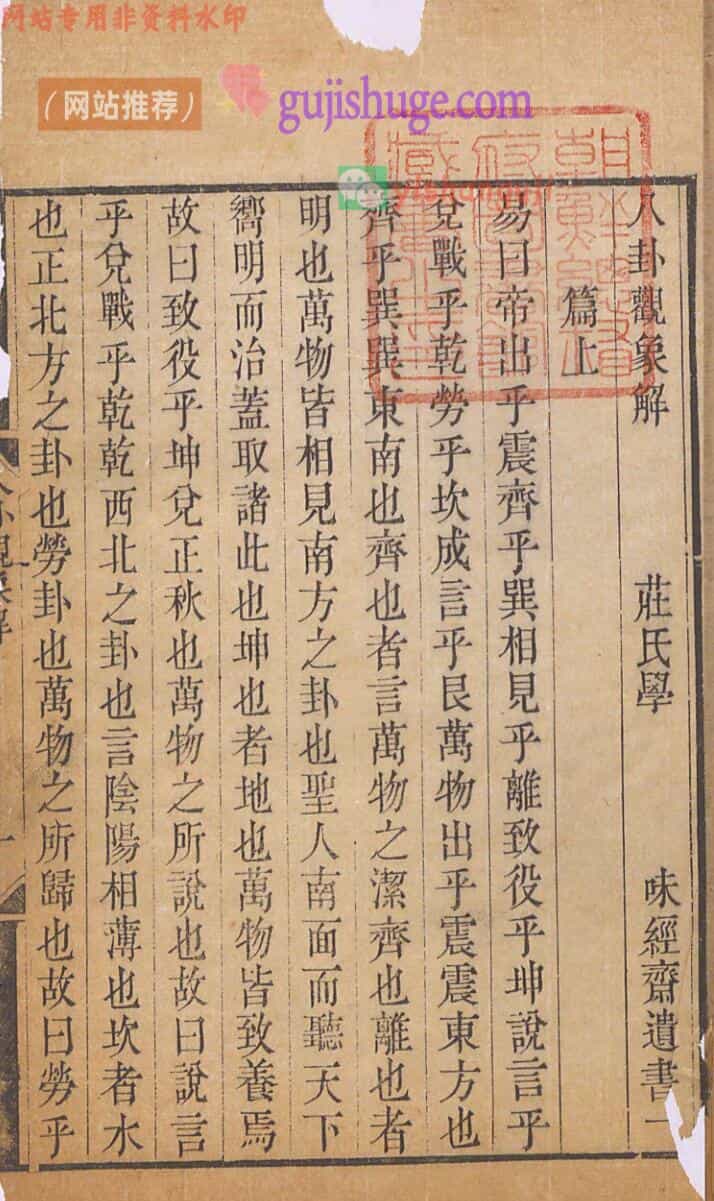 网站专用非资料水印
（网站推荐）
gujishuge.com
八卦觀象解 莊氏學 味經齋遺書一
篇上
易曰帝出乎震齊乎巽相見乎離致役乎坤說言乎
兌戰乎乾勞乎坎成言乎艮萬物出乎震震東方也
齊乎巽巽東南也齊也者言萬物之潔齊也離也者
明也萬物皆相見南方之卦也聖人南面而聽天下
嚮明而治蓋取諸此也坤也者地也萬物皆致養焉
故曰致役乎坤兌正秋也萬物之所說也故曰說言
乎兌戰乎乾乾西北之卦也言陰陽相薄也坎者水
也正北方之卦也勞卦也萬物之所歸也故曰勞乎